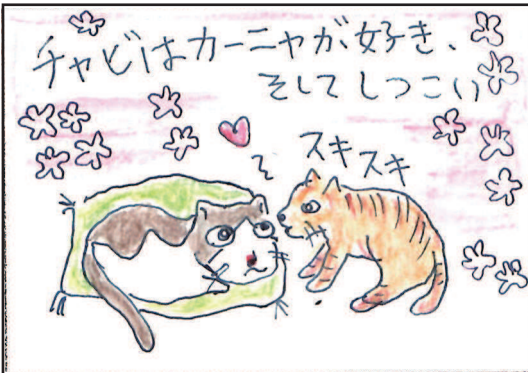 チャビはカーニャが、好き、
そしてしつこい
スキ
スキ